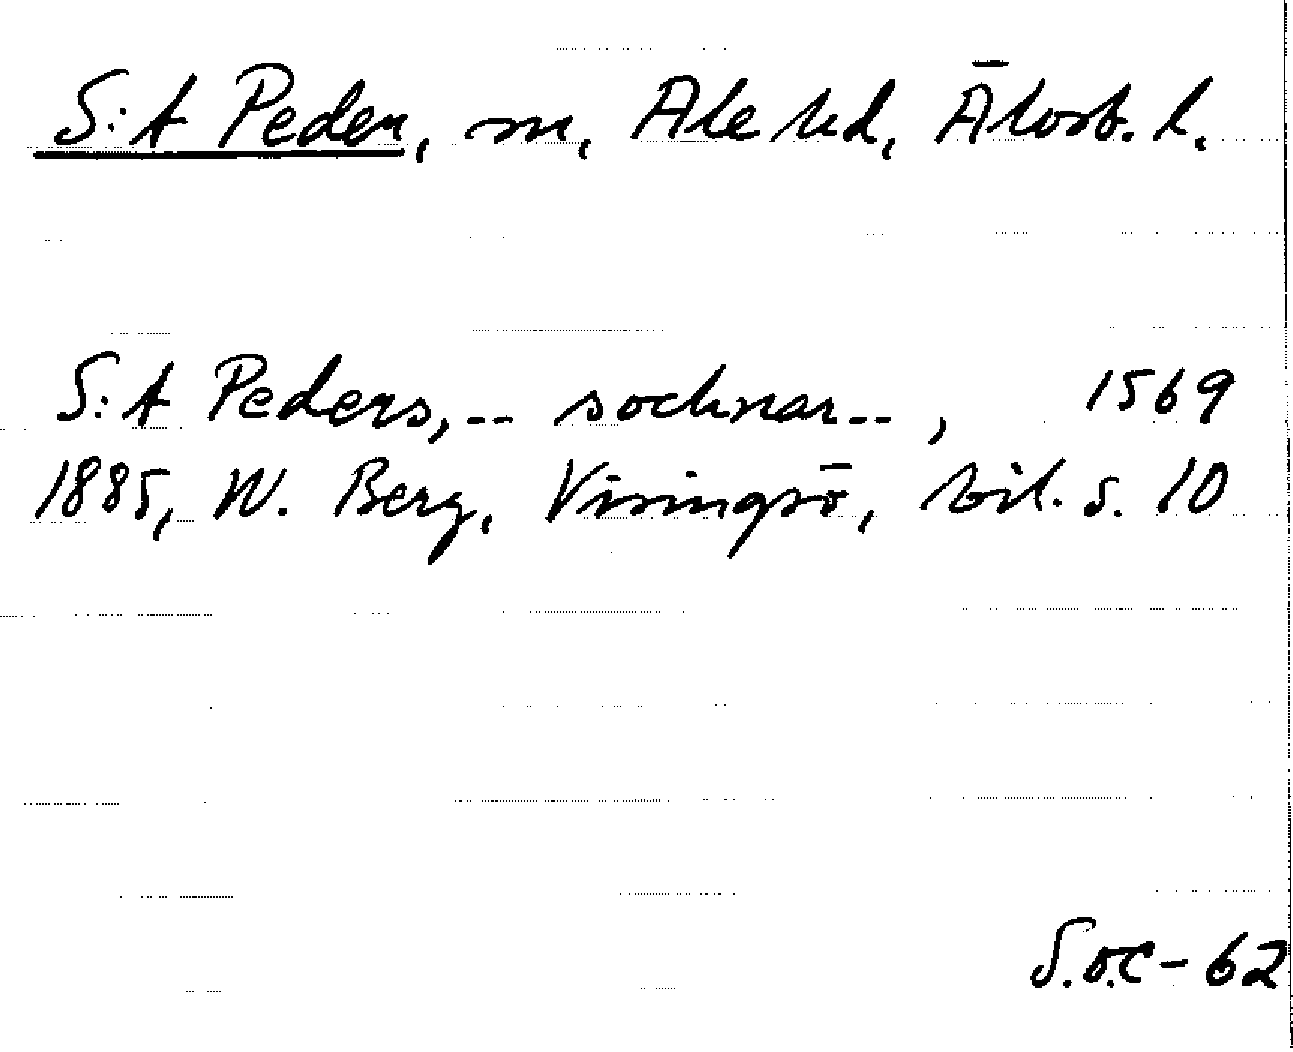 S:t Peder, sn, Ale hd, Älvsb. l.
S:t Peders, -- socknar -- , 1569
1885, W. Berg, Visingsö, bil. s. 10
S.ö.C-62